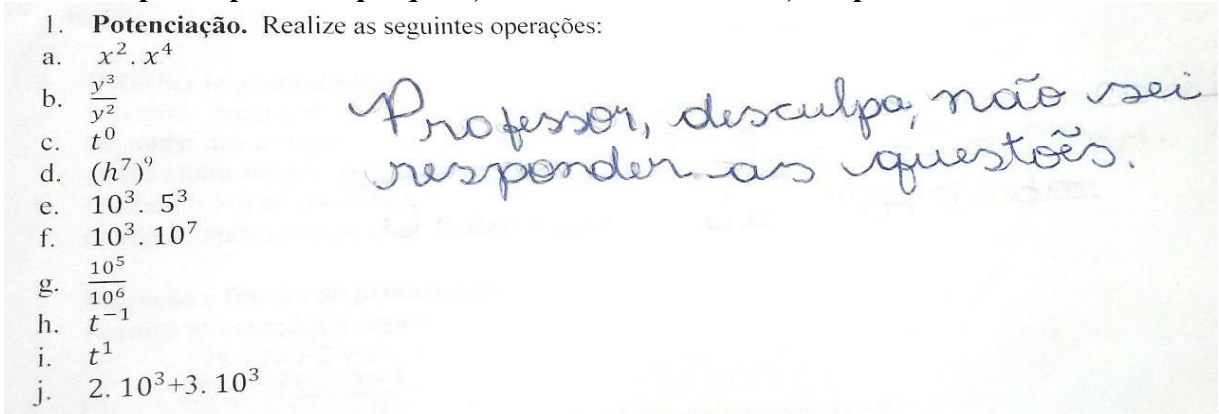 1. Potenciação. Realize as seguintes operações:
a. x². x⁴
b. y³/y²
c. t⁰
d. (h⁷)⁹
e. 10³. 5³
f. 10³. 10⁷
g. 10⁵/10⁶
h. t⁻¹
i. t¹
j. 2. 10³+3. 10³
Professor, desculpa, não sei
responder as questões.